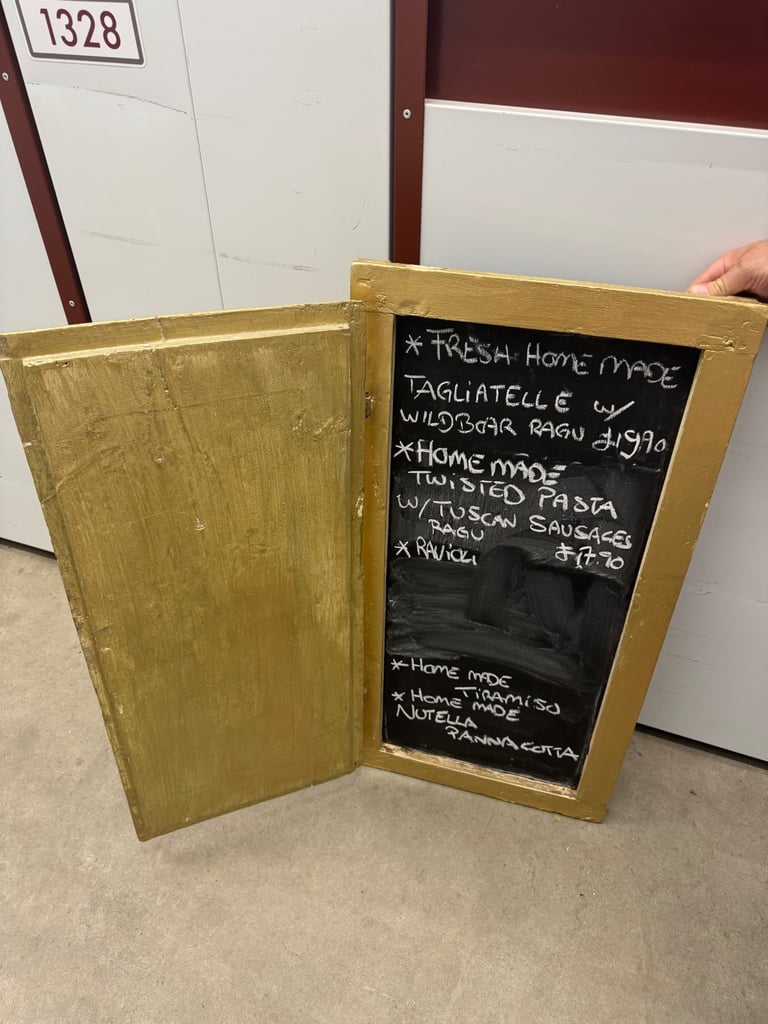 1328
* FRESH HOME MADE
TAGLIATELLE w/
WILDBOAR RAGU £19,90
* HOME MADE
TWISTED PASTA
W/ TUSCAN SAUSAGES
RAGU £17.90
* RAVIOLI
* HOME MADE
TIRAMISO
* HOME MADE
NUTELLA
PANNACOTTA